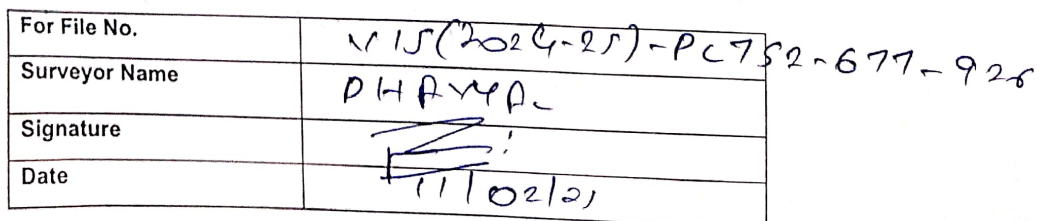 For File No. VIS(2024-25)-PC752-677-926
Surveyor Name DHAVAL
Signature
Date 11/02/25